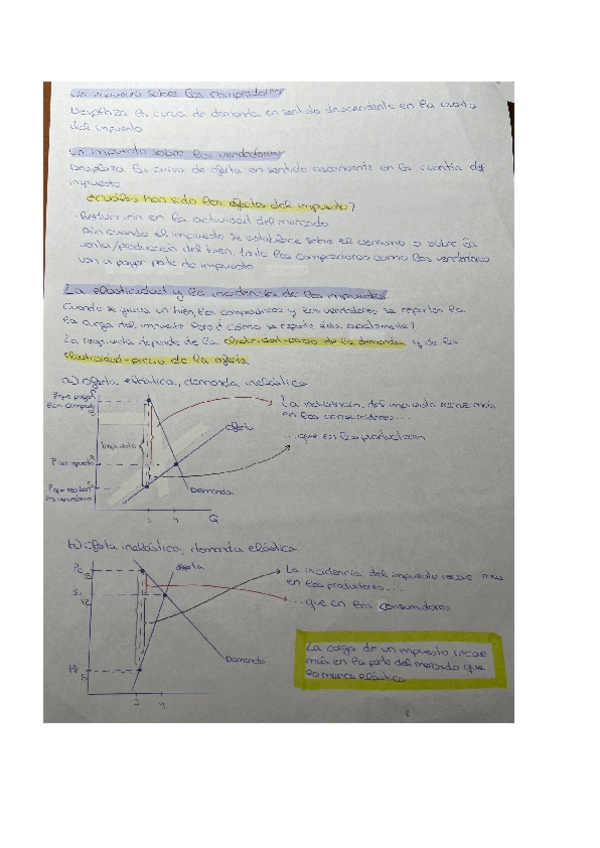 Un impuesto sobre los compradores
Desplaza la curva de demanda en sentido descendente en la cuantía
del impuesto
Un impuesto sobre los vendedores
Desplaza la curva de oferta en sentido ascendente en la cuantía del
impuesto
¿Cuáles han sido los efectos del impuesto?
- Reducción en la actividad del mercado
- Aún cuando el impuesto se establece sobre el consumo o sobre la
venta/producción del bien, tanto los compradores como los vendedores
van a pagar parte de impuesto
La elasticidad y la incidencia de los impuestos
Cuando se grava un bien, los compradores y los vendedores se reparten la
la carga del impuesto. Pero ¿cómo se reparte exactamente?
La respuesta depende de la elasticidad-precio de la demanda y de la
elasticidad-precio de la oferta.
a) oferta elástica, demanda inelástica
P que pagan
los comprad
La incidencia del impuesto recae más
en los consumidores...
oferta
...que en los productores
Impuesto
P sin impuesto
P que reciben
los vendedores
Demanda
3 4 Q
b) oferta inelástica, demanda elástica
Pc
oferta
La incidencia del impuesto recae más
en los productores...
...que en los consumidores
Demanda
La carga de un impuesto recae
más en la parte del mercado que
es menos elástica
3 4